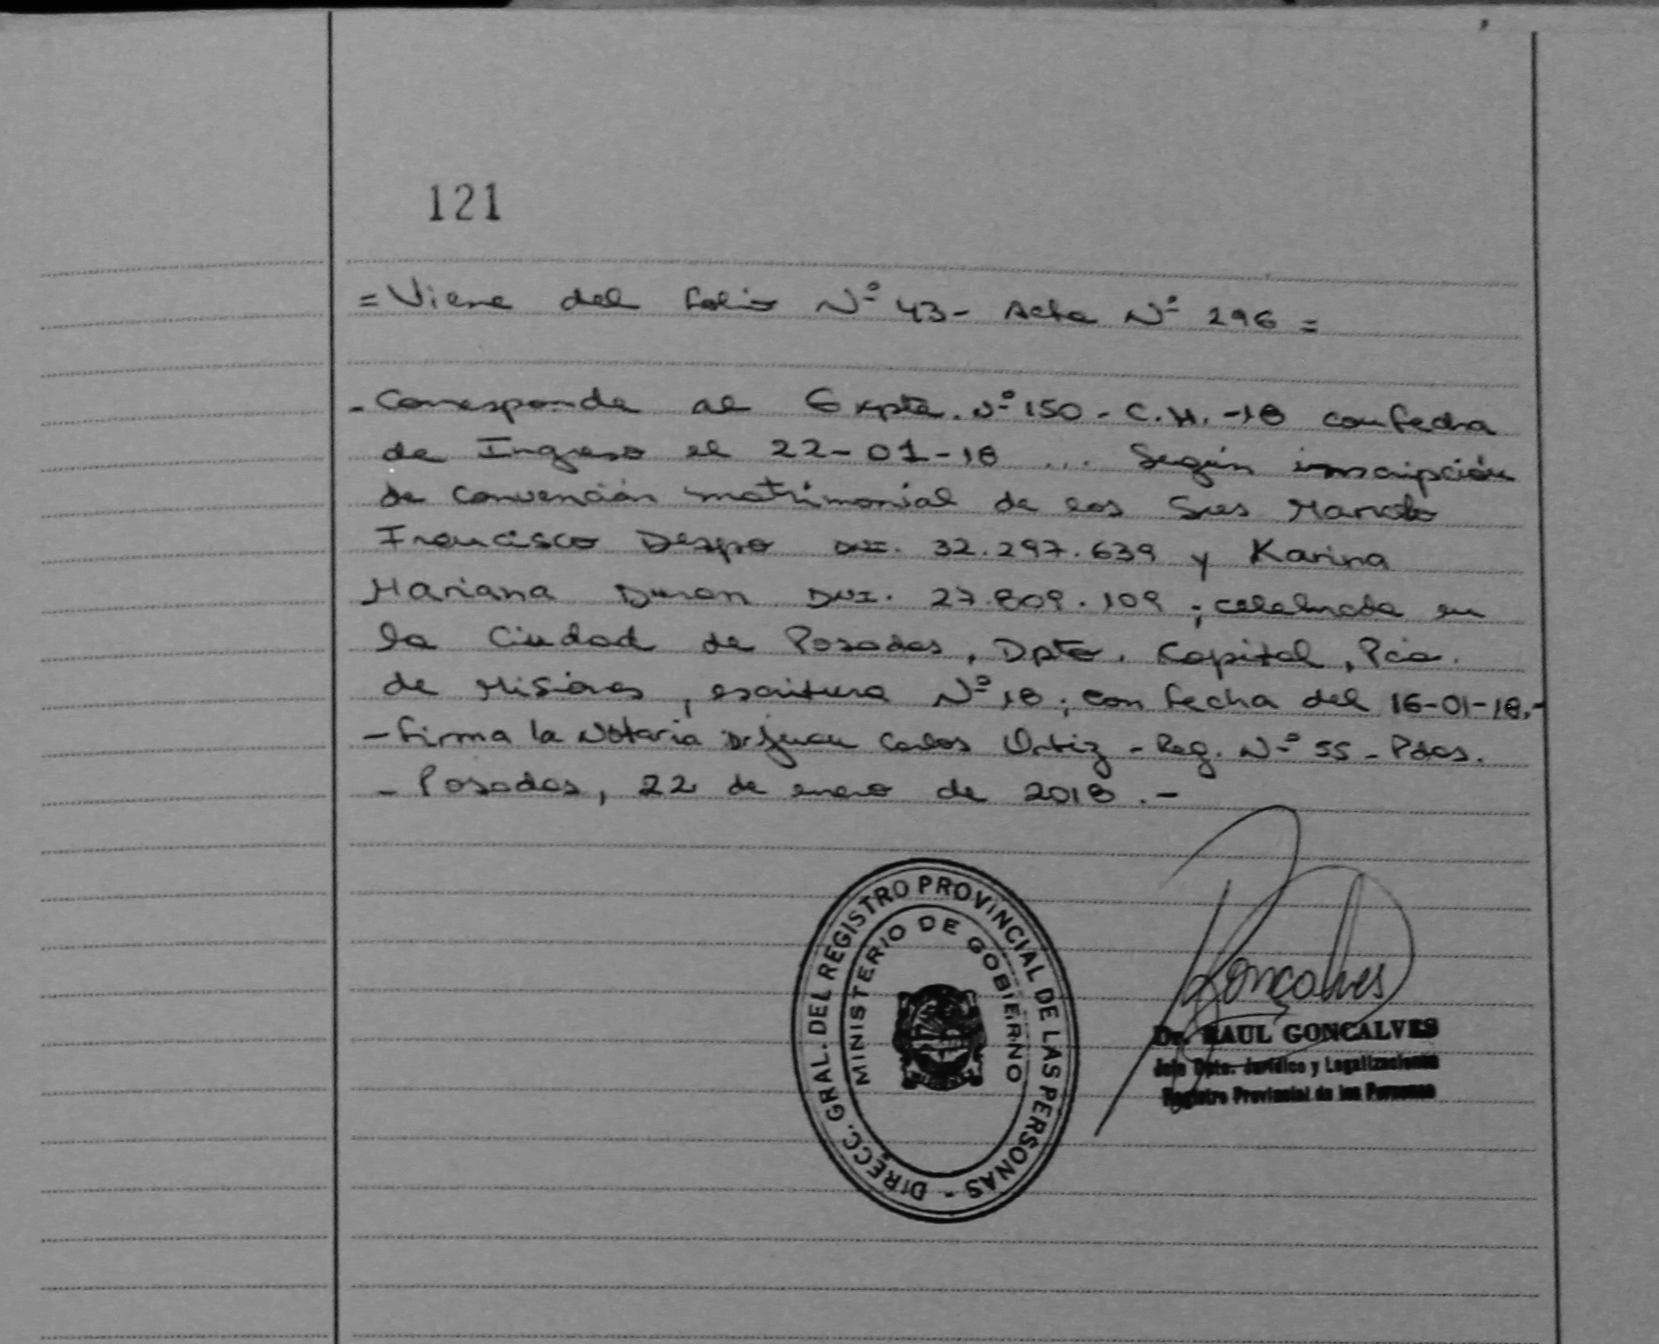 121
= Viene del folio Nº 43 - Acta Nº 296 =
- Corresponde al Expte. Nº 150 - C.M. - 18 con fecha
de Ingreso el 22-01-18 ... Según inscripción
de convención matrimonial de los Sres Marcelo
Francisco Despo DNI. 32.297.639 y Karina
Mariana Duran DNI. 27.809.109 ; celebrada en
la Ciudad de Posadas, Dpto. Capital, Pcia.
de Misiones, escritura Nº 18; con fecha del 16-01-18.-
- Firma la Notaria Dr Juan Carlos Ortiz - Reg. Nº 55 - Pdas.
- Posadas, 22 de enero de 2018 .-
DIRECC. GRAL. DEL REGISTRO PROVINCIAL DE LAS PERSONAS -
MINISTERIO DE GOBIERNO
Gonçalves
Dr. RAUL GONCALVES
Jefe Dpto. Jurídico y Legalizaciones
Registro Provincial de las Personas